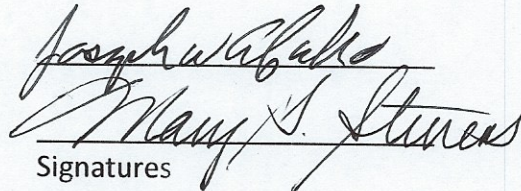 Joseph W
Mary S. Stevens
Signatures